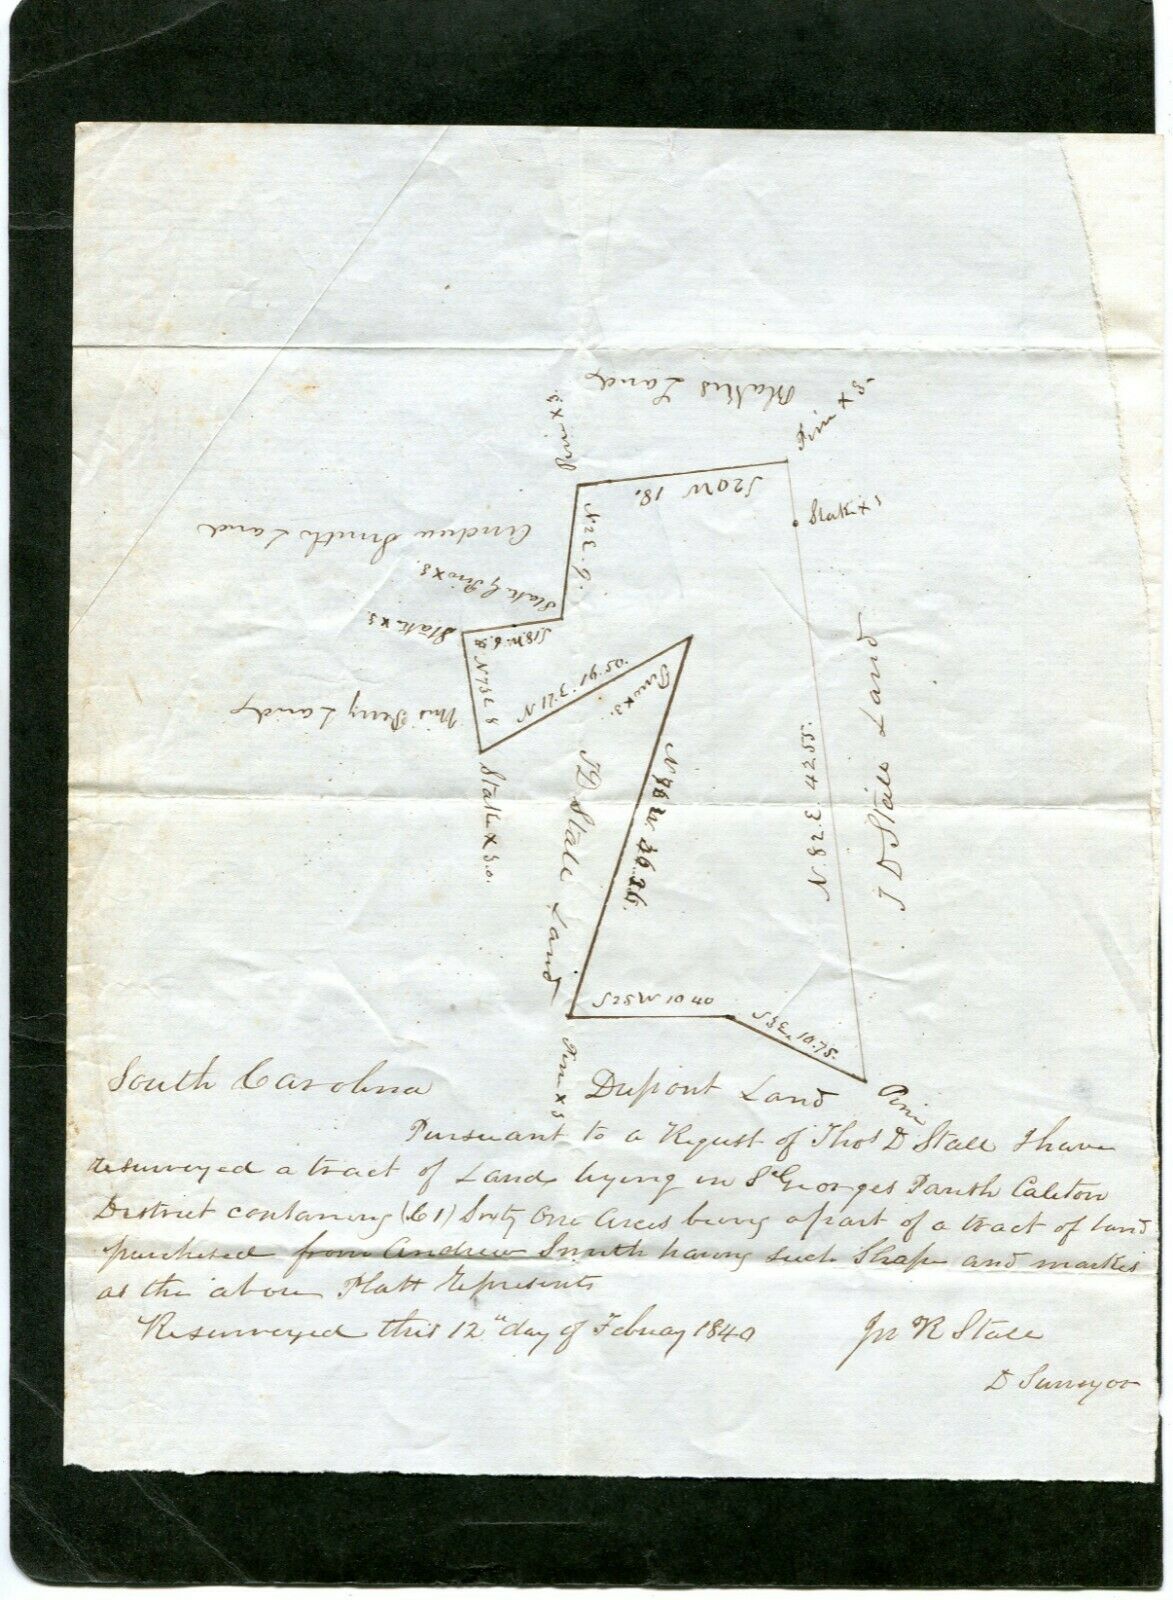 Blakes Land
Pine x 3
Pine x 3
S20W 18.
Stake x 3
N2E. 9.
Andrew Smith Land
Stake & Pine x 3.
Stake x 3.
S18W. 6.50
N73W 8
N17E. 16.50.
Pine x 3.
Miss Perry Land
Stake x 3.0.
J D Stall Land
N76W 36.26.
N.82.E. 4255.
J D Stall Land
S25W 10 40
S3E. 10.75.
Pine x 3
Dupont Land
Pine
South Carolina
Pursuant to a Request of Thos D Stall I have
resurveyed a tract of Land lying in St Georges Parish Colleton
District containing (61) Sixty One Acres being a part of a tract of land
purchesed from Andrew Smith having such Shape and markes
as the above Platt represents
Resurveyed this 12th day of Febuay 1840
Jn R Stall
D Surveyor